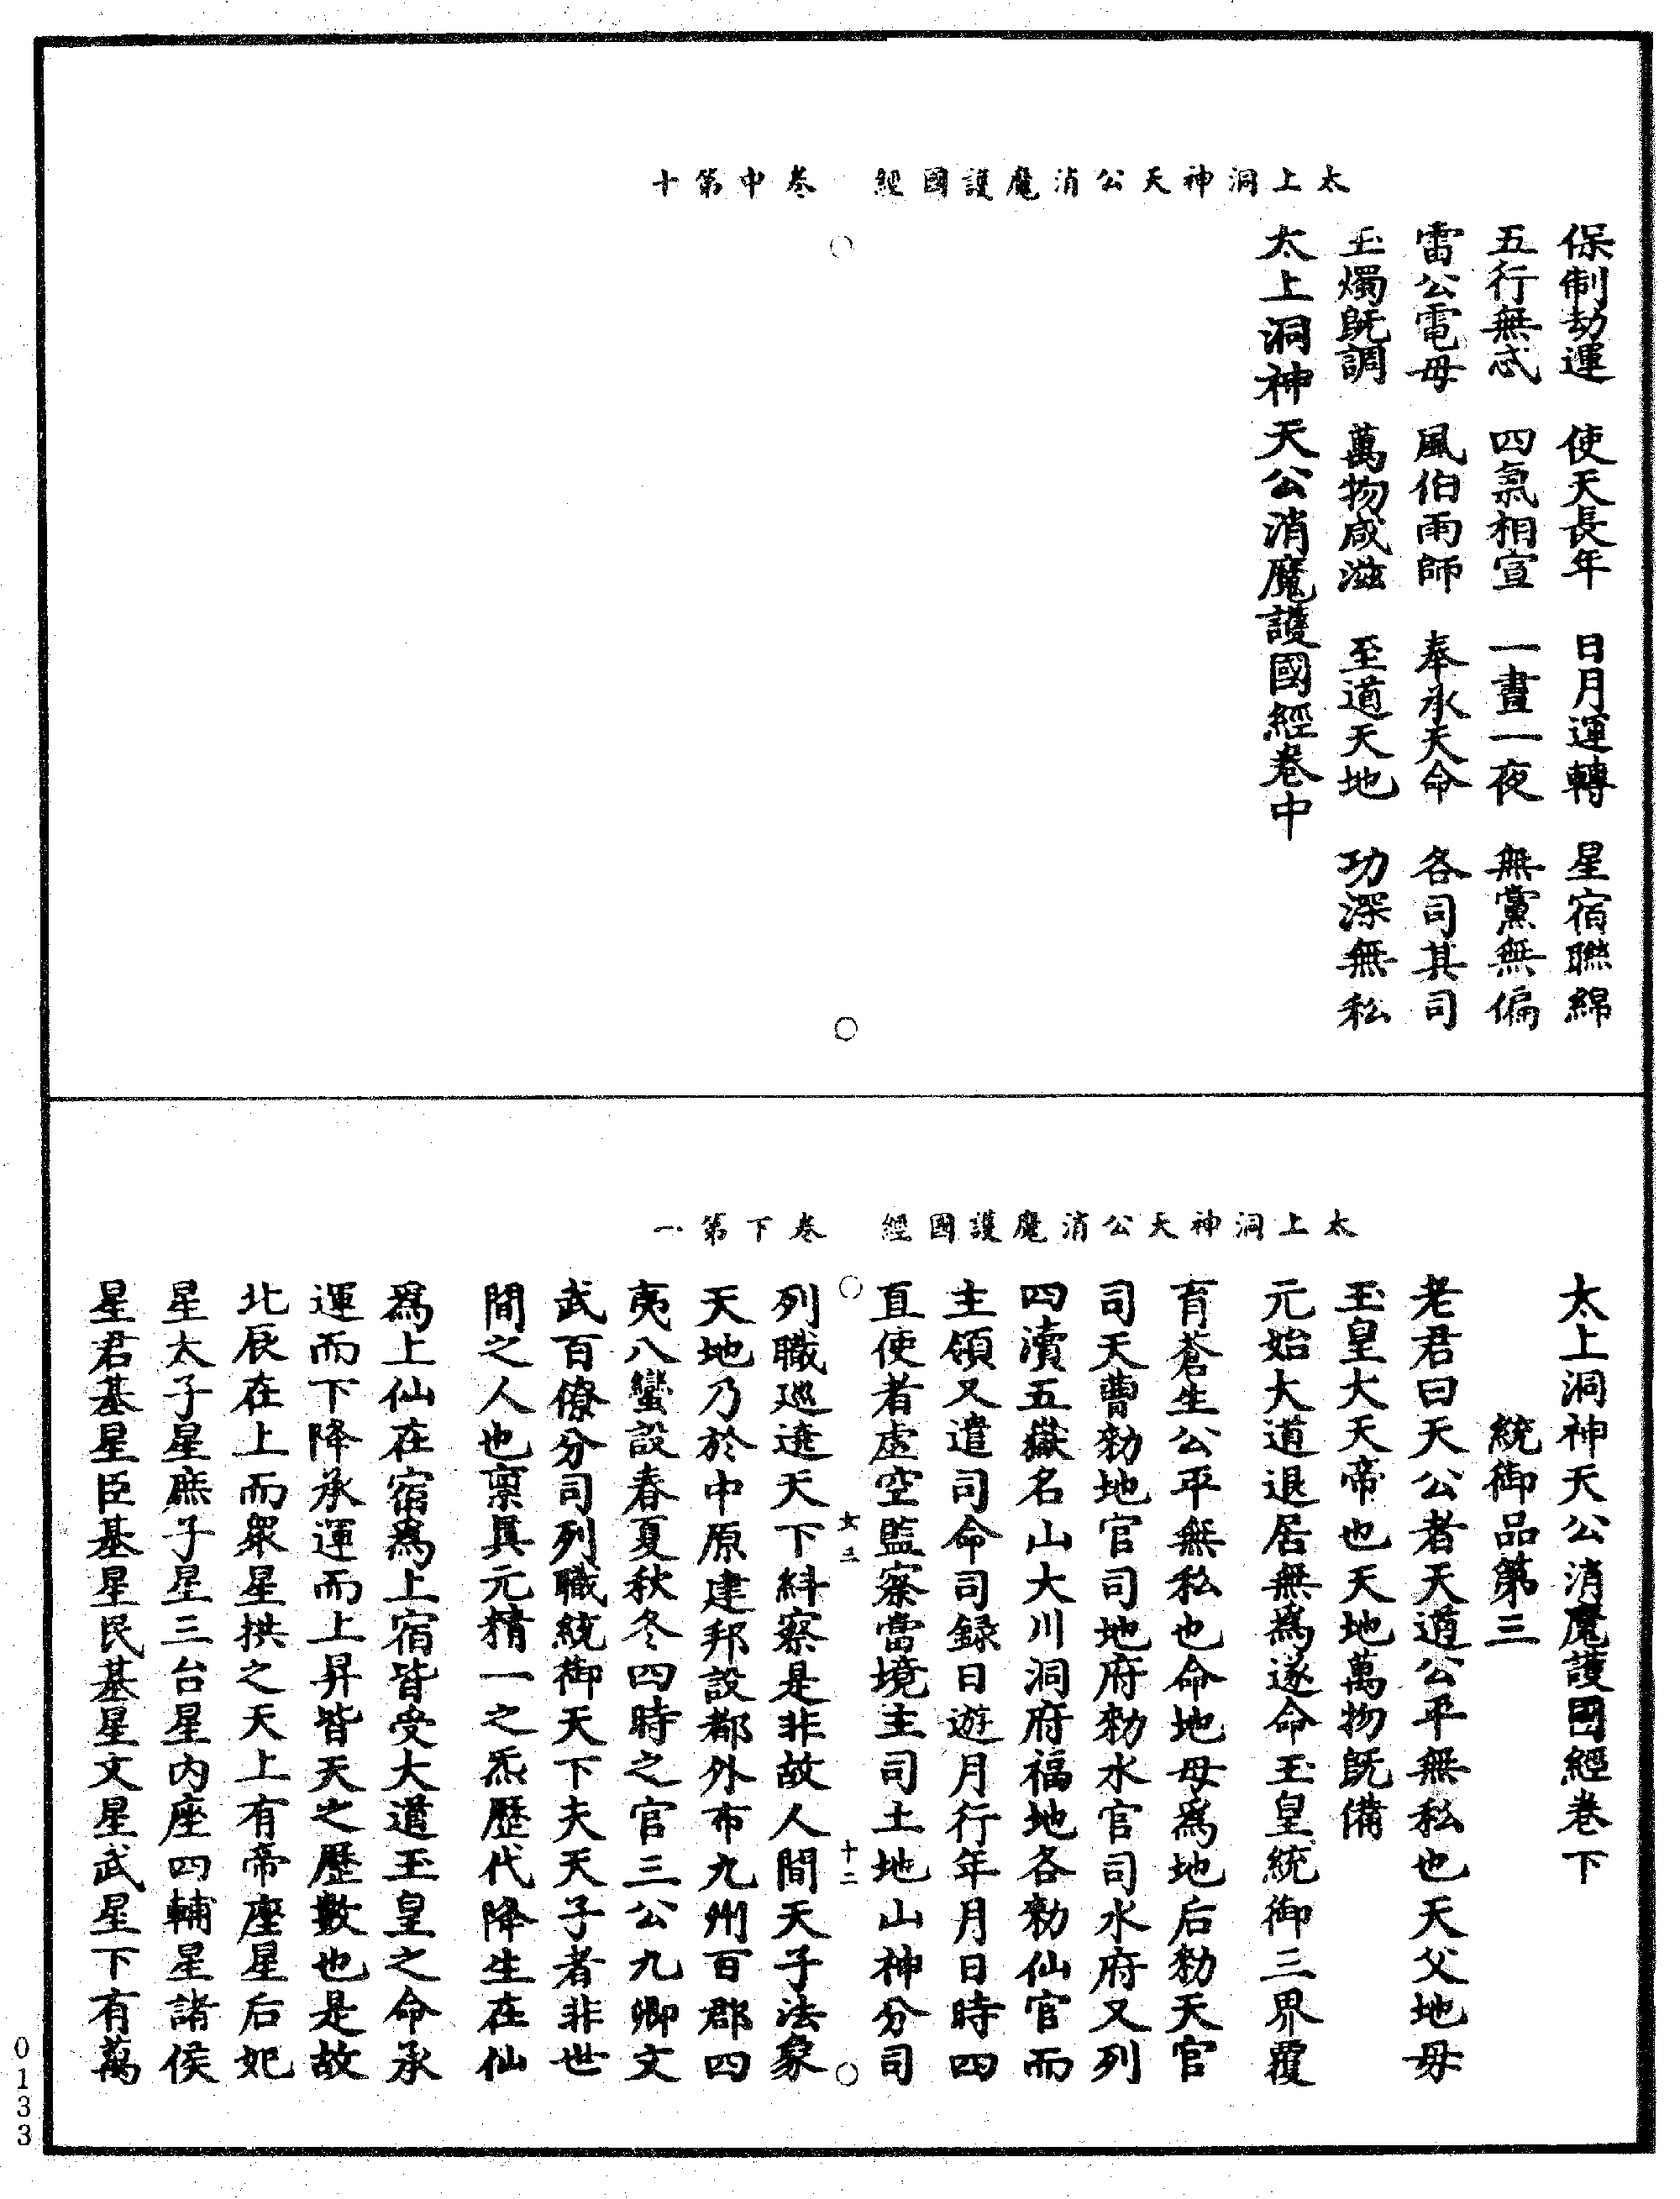 太上洞神天公消魔護國經　卷中第十
保制劫運　使天長年　日月運轉　星宿聯綿
五行無忒　四氣相宣　一晝一夜　無黨無偏
雷公電母　風伯雨師　奉承天命　各司其司
玉燭既調　萬物咸滋　至道天地　功深無私
太上洞神天公消魔護國經卷中
太上洞神天公消魔護國經　卷下第一
太上洞神天公消魔護國經卷下
統御品第三
老君曰天公者天道公平無私也天父地母
玉皇大天帝也天地萬物既備
元始大道退居無為遂命玉皇統御三界覆
育蒼生公平無私也命地母為地后勑天官
司天曹勑地官司地府勑水官司水府又列
四瀆五嶽名山大川洞府福地各勑仙官而
主領又遣司命司録日遊月行年月日時四
直使者虛空監察當境主司土地山神分司
女三　十二
列職巡遶天下糾察是非故人間天子法象
天地乃於中原建邦設都外布九州百郡四
夷八蠻設春夏秋冬四時之官三公九卿文
武百僚分司列職統御天下夫天子者非世
間之人也稟真元精一之炁歷代降生在仙
為上仙在宿為上宿皆受大道玉皇之命承
運而下降承運而上昇皆天之歷數也是故
北辰在上而眾星拱之天上有帝座星后妃
星太子星庶子星三台星內座四輔星諸侯
星君基星臣基星民基星文星武星下有萬
0133